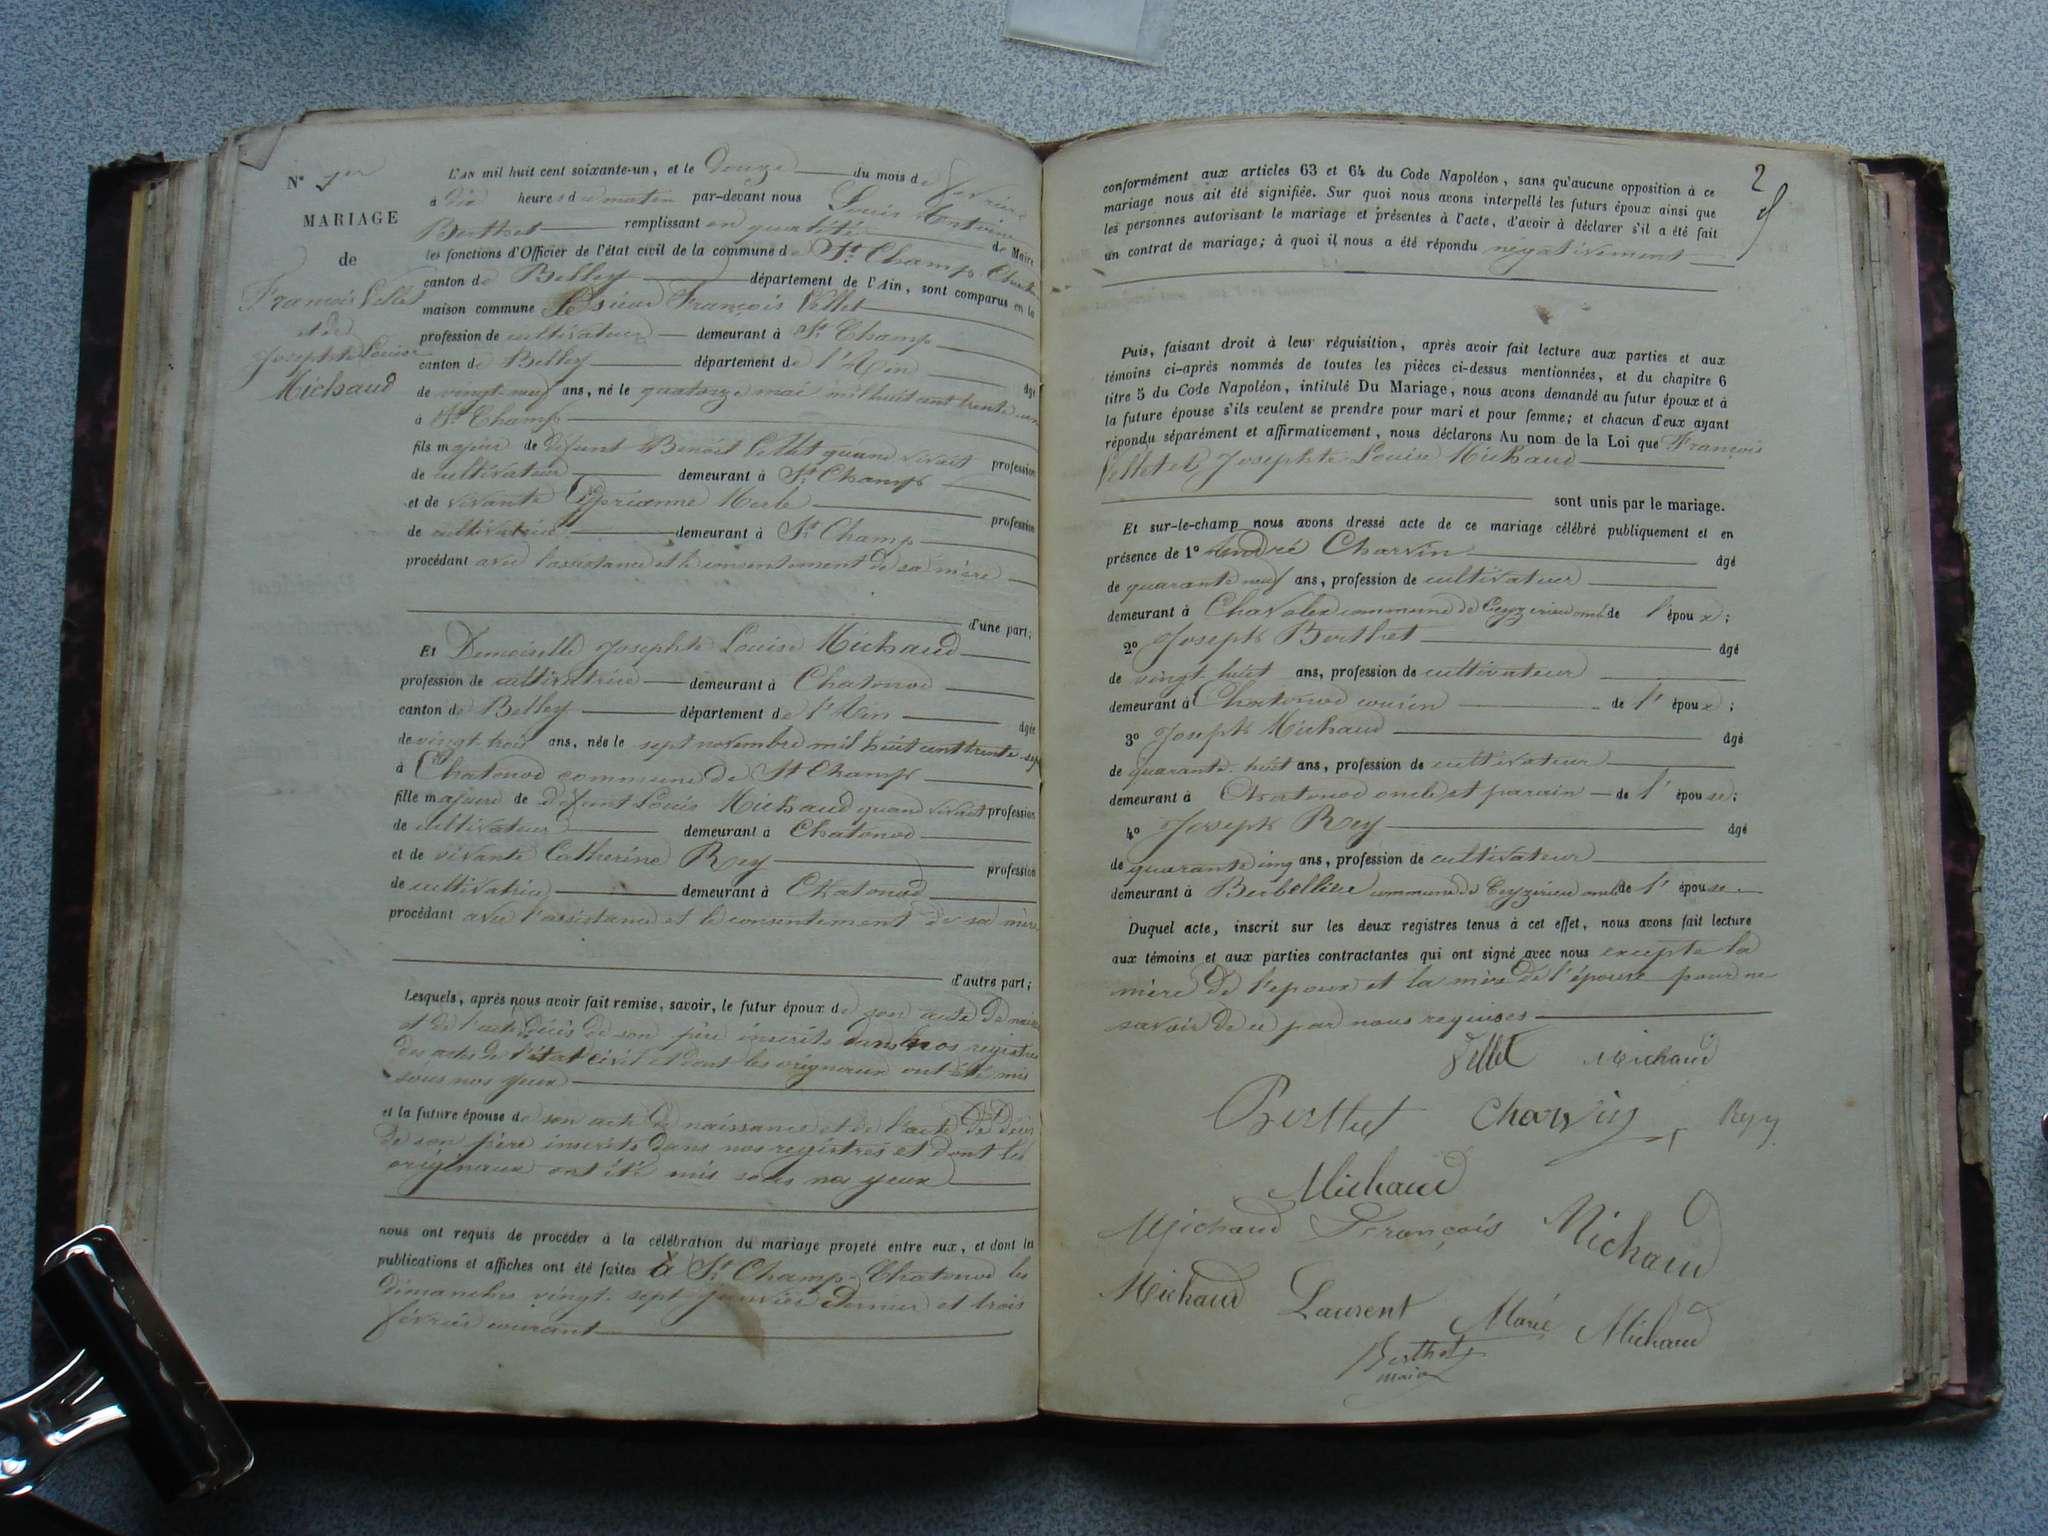 N° 1er
MARIAGE
de
François Vellet
et de
Josephte Louise
Michaud
L'AN mil huit cent soixante-un, et le Douze du mois de février
à dix heures du matin par-devant nous Louis Antoine
Berthet remplissant en qualité de Maire
les fonctions d'Officier de l'état civil de la commune de St Champ-Chatonod
canton de Belley département de l'Ain, sont comparus en la
maison commune Le sieur François Vellet
profession de cultivateur demeurant à St Champ
canton de Belley département de l'Ain âgé
de vingt-neuf ans, né le quatorze mai mil huit cent trente-un
à St Champ
fils majeur de défunt Benoit Vellet quand vivait profession
de cultivateur demeurant à St Champ
et de vivante Cyprianne Merle profession
de cultivatrice demeurant à St Champ
procédant avec l'assistance et le consentement de sa mère
d'une part;
Et Demoiselle Josephte Louise Michaud
profession de cultivatrice demeurant à Chatonod
canton de Belley département de l'Ain âgée
de vingt trois ans, née le sept novembre mil huit cent trente-sept
à Chatonod commune de St Champ
fille majeure de défunt Louis Michaud quand vivait profession
de cultivateur demeurant à Chatonod
et de vivante Catherine Rey profession
de cultivatrice demeurant à Chatonod
procédant avec l'assistance et le consentement de sa mère
d'autre part;
Lesquels, après nous avoir fait remise, savoir, le futur époux de son acte de naiss
et de l'acte décès de son père inscrits dans nos registres
des actes de l'état civil et dont les originaux ont été mis
sous nos yeux
et la future épouse de son acte de naissance et de l'acte de décès
de son père inscrits dans nos registres et dont les
originaux ont été mis sous nos yeux
nous ont requis de procéder à la célébration du mariage projeté entre eux, et dont les
publications et affiches ont été faites à St Champ-Chatonod les
dimanches vingt-sept janvier dernier et trois
février courant
2
conformément aux articles 63 et 64 du Code Napoléon, sans qu'aucune opposition à ce
mariage nous ait été signifiée. Sur quoi nous avons interpellé les futurs époux ainsi que
les personnes autorisant le mariage et présentes à l'acte, d'avoir à déclarer s'il a été fait
un contrat de mariage; à quoi il nous a été répondu négativement
Puis, faisant droit à leur réquisition, après avoir fait lecture aux parties et aux
témoins ci-après nommés de toutes les pièces ci-dessus mentionnées, et du chapitre 6
titre 5 du Code Napoléon, intitulé Du Mariage, nous avons demandé au futur époux et à
la future épouse s'ils veulent se prendre pour mari et pour femme; et chacun d'eux ayant
répondu séparément et affirmativement, nous déclarons Au nom de la Loi que François
Vellet et Josephte Louise Michaud
sont unis par le mariage.
Et sur-le-champ nous avons dressé acte de ce mariage célébré publiquement et en
présence de 1° André Charvin âgé
de quarante neuf ans, profession de cultivateur
demeurant à Chavolex commune de Ceyzerieu oncle de l'époux;
2° Joseph Berthet âgé
de vingt huit ans, profession de cultivateur
demeurant à Chatonod cousin de l'époux;
3° Joseph Michaud âgé
de quarante-huit ans, profession de cultivateur
demeurant à Chatonod oncle et parain de l'épouse;
4° Joseph Rey âgé
de quarante cinq ans, profession de cultivateur
demeurant à Berbellieu commune de Ceyzerieu oncle de l'épouse.
Duquel acte, inscrit sur les deux registres tenus à cet effet, nous avons fait lecture
aux témoins et aux parties contractantes qui ont signé avec nous excepté la
mère de l'époux et la mère de l'épouse pour ne
savoir de ce par nous requises
Vellet Michaud
Berthet Charvin Rey
Michaud
Michaud François Michaud
Michaud Laurent Marie Michaud
Berthet
maire